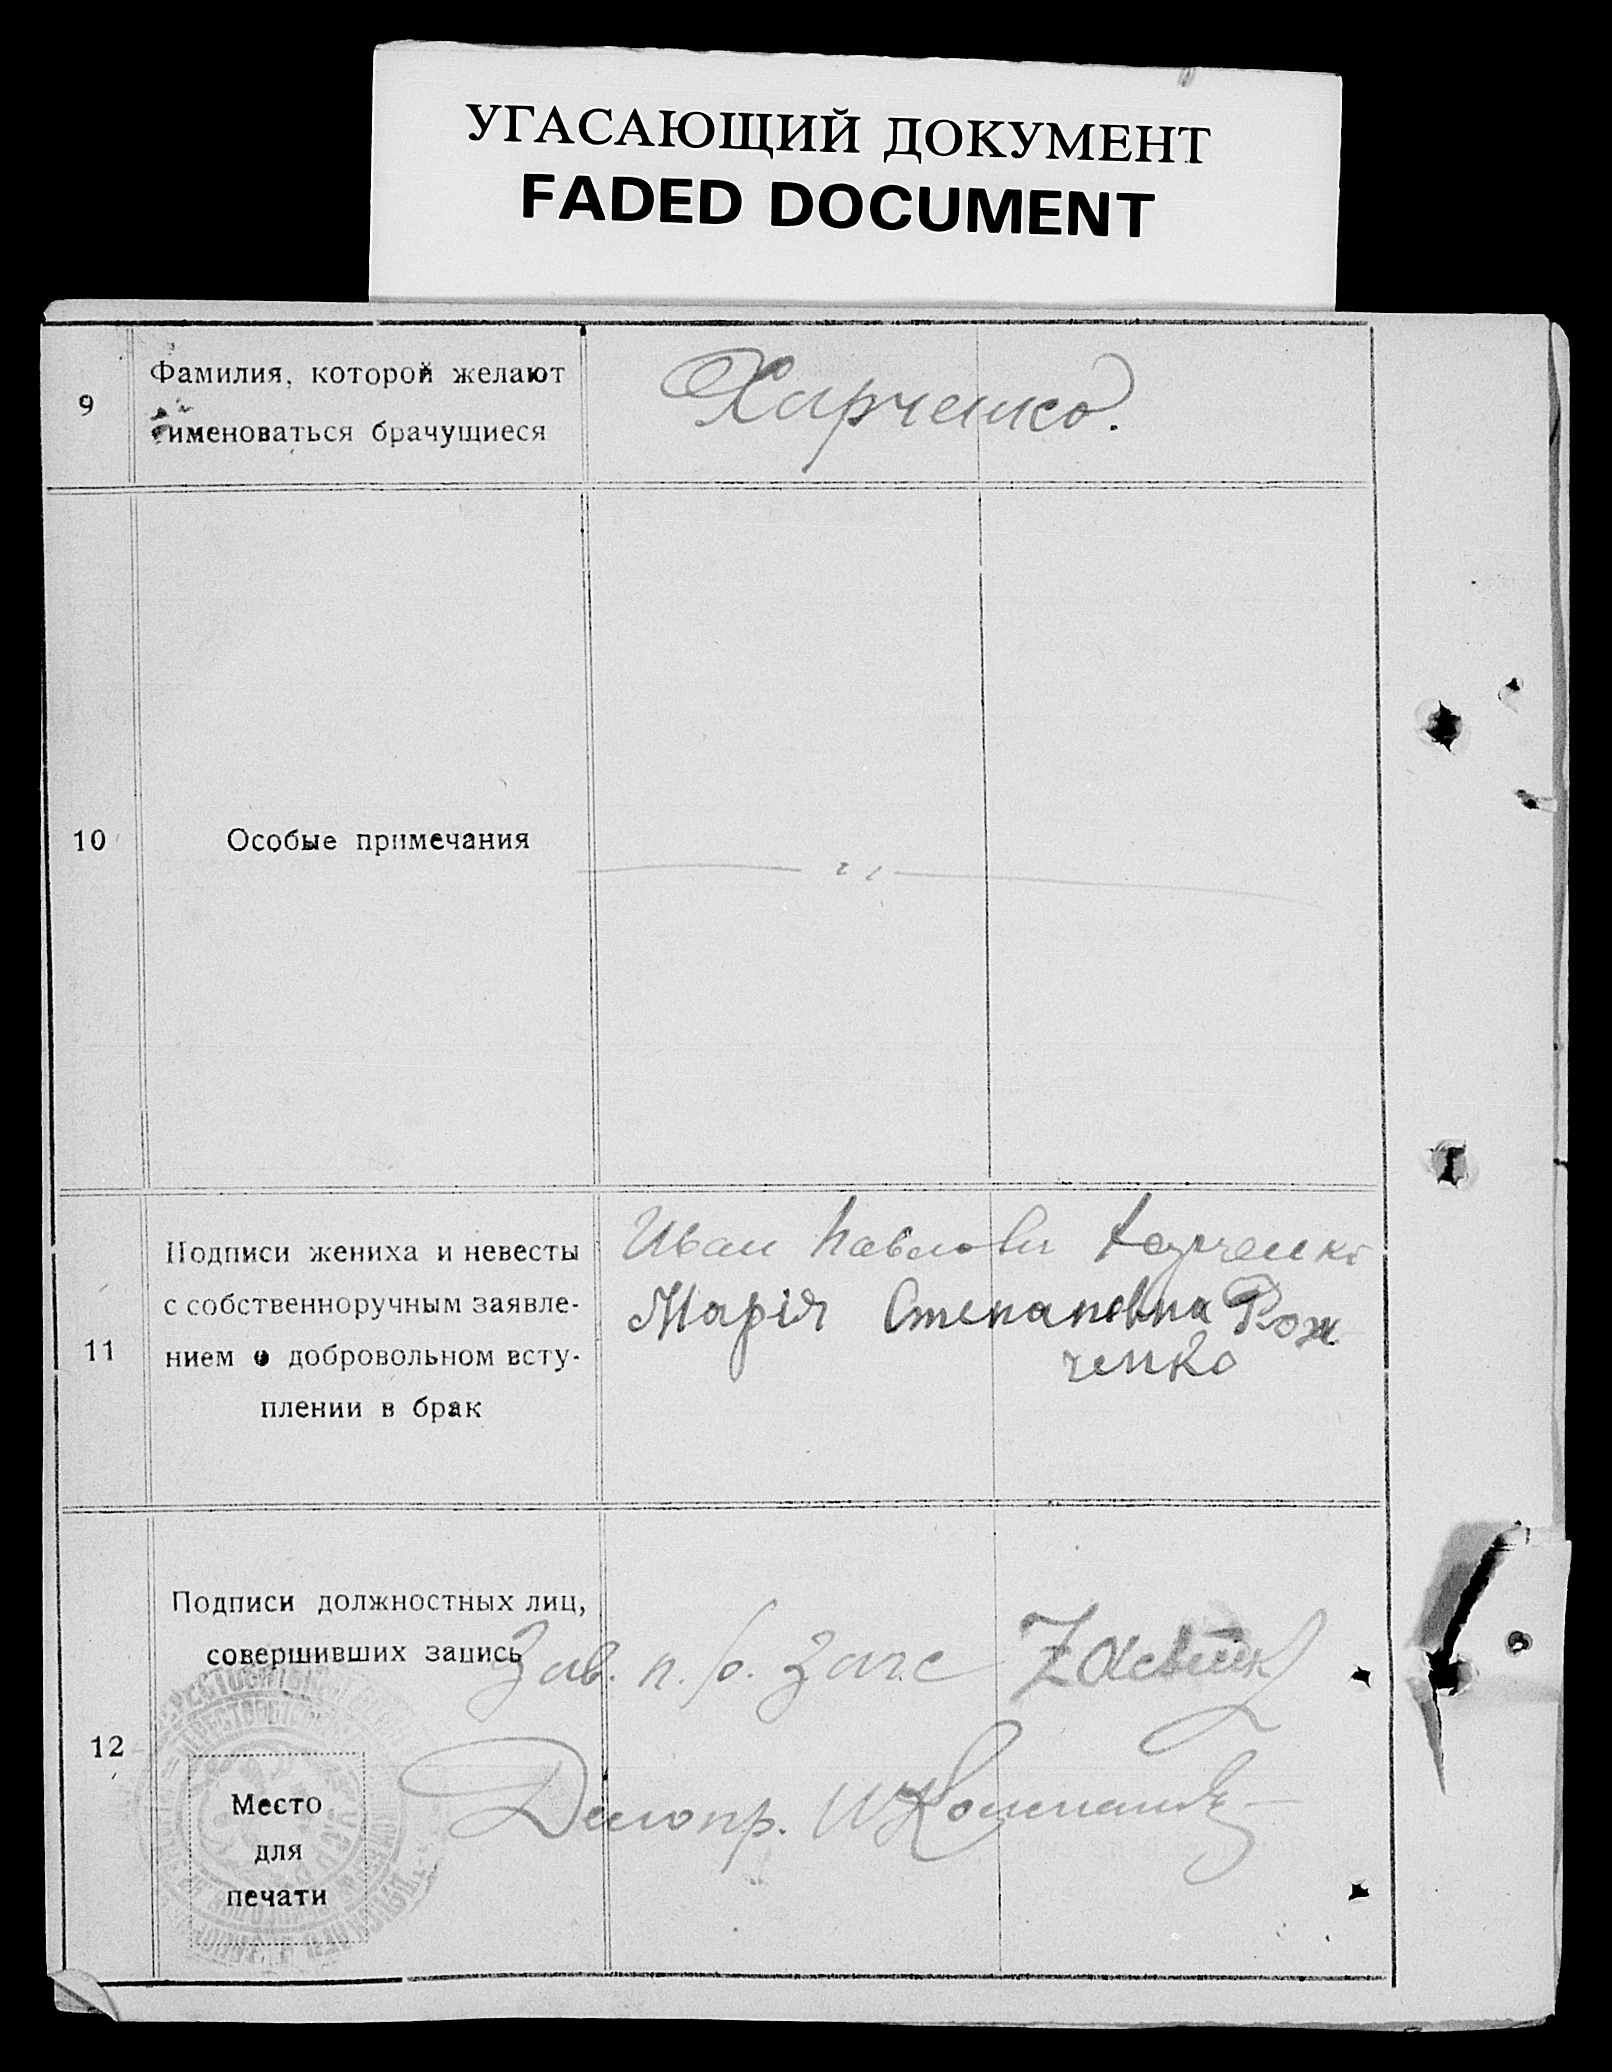 УГАСАЮЩИЙ ДОКУМЕНТ
FADED DOCUMENT
9
Фамилия, которой желают
именоваться брачущиеся
Харченко.
10
Особые примечания
11
Подписи жениха и невесты
с собственноручным заявле-
нием о добровольном всту-
плении в брак
Иван Павлови Харченко
Марія Степановна Рож
ченко
12
Подписи должностных лиц,
совершивших запись
Зав. п./о. Загс
Делопр.
Место
для
печати